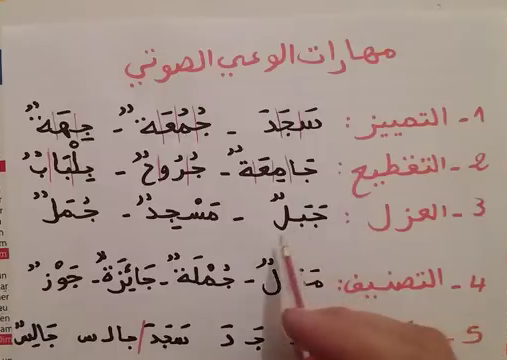 مهارات الوعي الصوتي
1 - التمييز : سَجَدَ - جُمُعَةٌ - جِهَةٌ
2 - التقطيع : جَامِعَةٌ - جُرُوحٌ - جِلْبَابٌ
3 - العزل : جَبَلٌ - مَسْجِدٌ - جُمَلٌ
4 - التصنيف : جُمْلَةٌ - جَائِزَةٌ - جَوْزٌ
5 - جَ دَ سَجَدَ / جالس جَالِسٌ